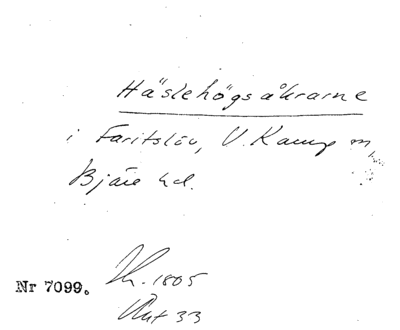 Häslehögsåkrarne
i Faritslöv, V. Karup sn,
Bjäre hd.
Nr 7099. Lh. 1805
Akt 33